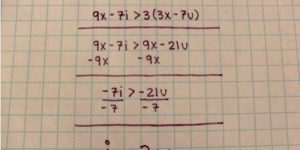 9x-7i>3(3x-7u)
9x-7i>9x-21u
-9x -9x
-7i>-21u
-7 -7